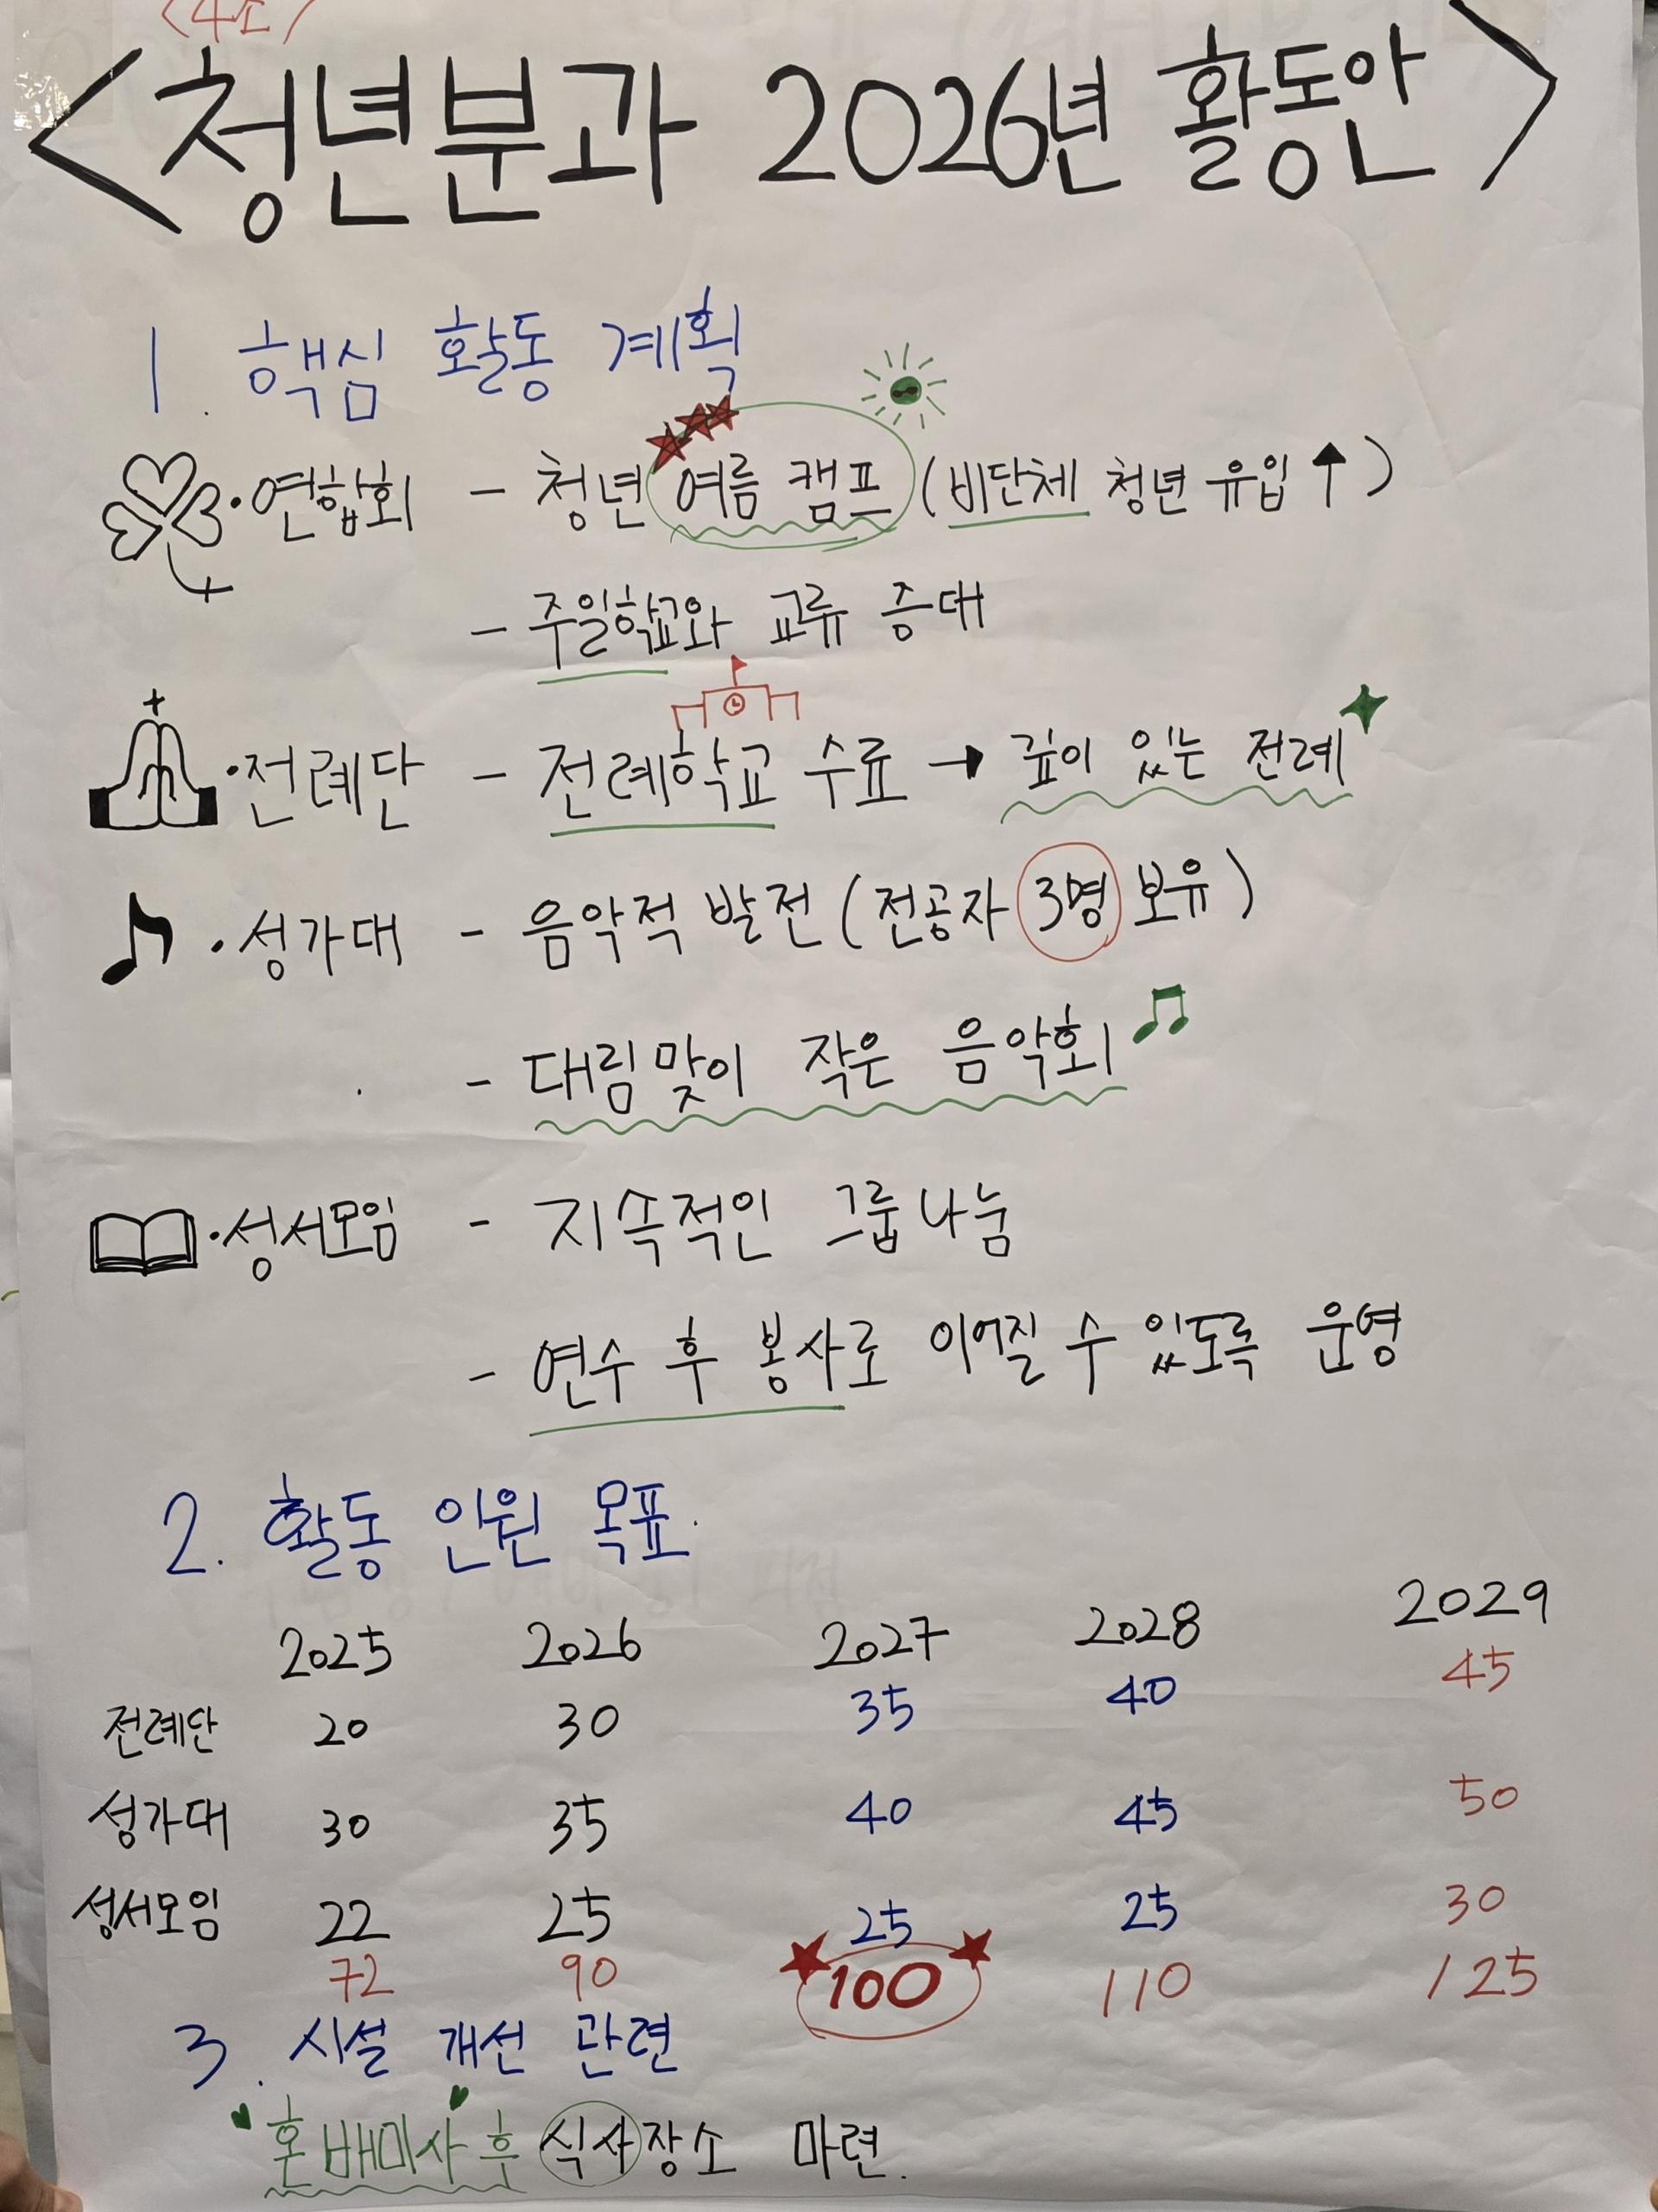 <4조>
<청년분과 2026년 활동안>
1. 핵심 활동 계획
·연합회 - 청년 여름 캠프 (비단체 청년 유입↑)
- 주일학교와 교류 증대
·전례단 - 전례학교 수료 → 깊이 있는 전례
·성가대 - 음악적 발전 (전공자 3명 보유)
- 대림맞이 작은 음악회
·성서모임 - 지속적인 그룹나눔
- 연수 후 봉사로 이어질 수 있도록 운영
2. 활동 인원 목표.
2025 2026 2027 2028 2029
전례단 20 30 35 40 45
성가대 30 35 40 45 50
성서모임 22 25 25 25 30
72 90 100 110 125
3. 시설 개선 관련
혼배미사 후 식사장소 마련.